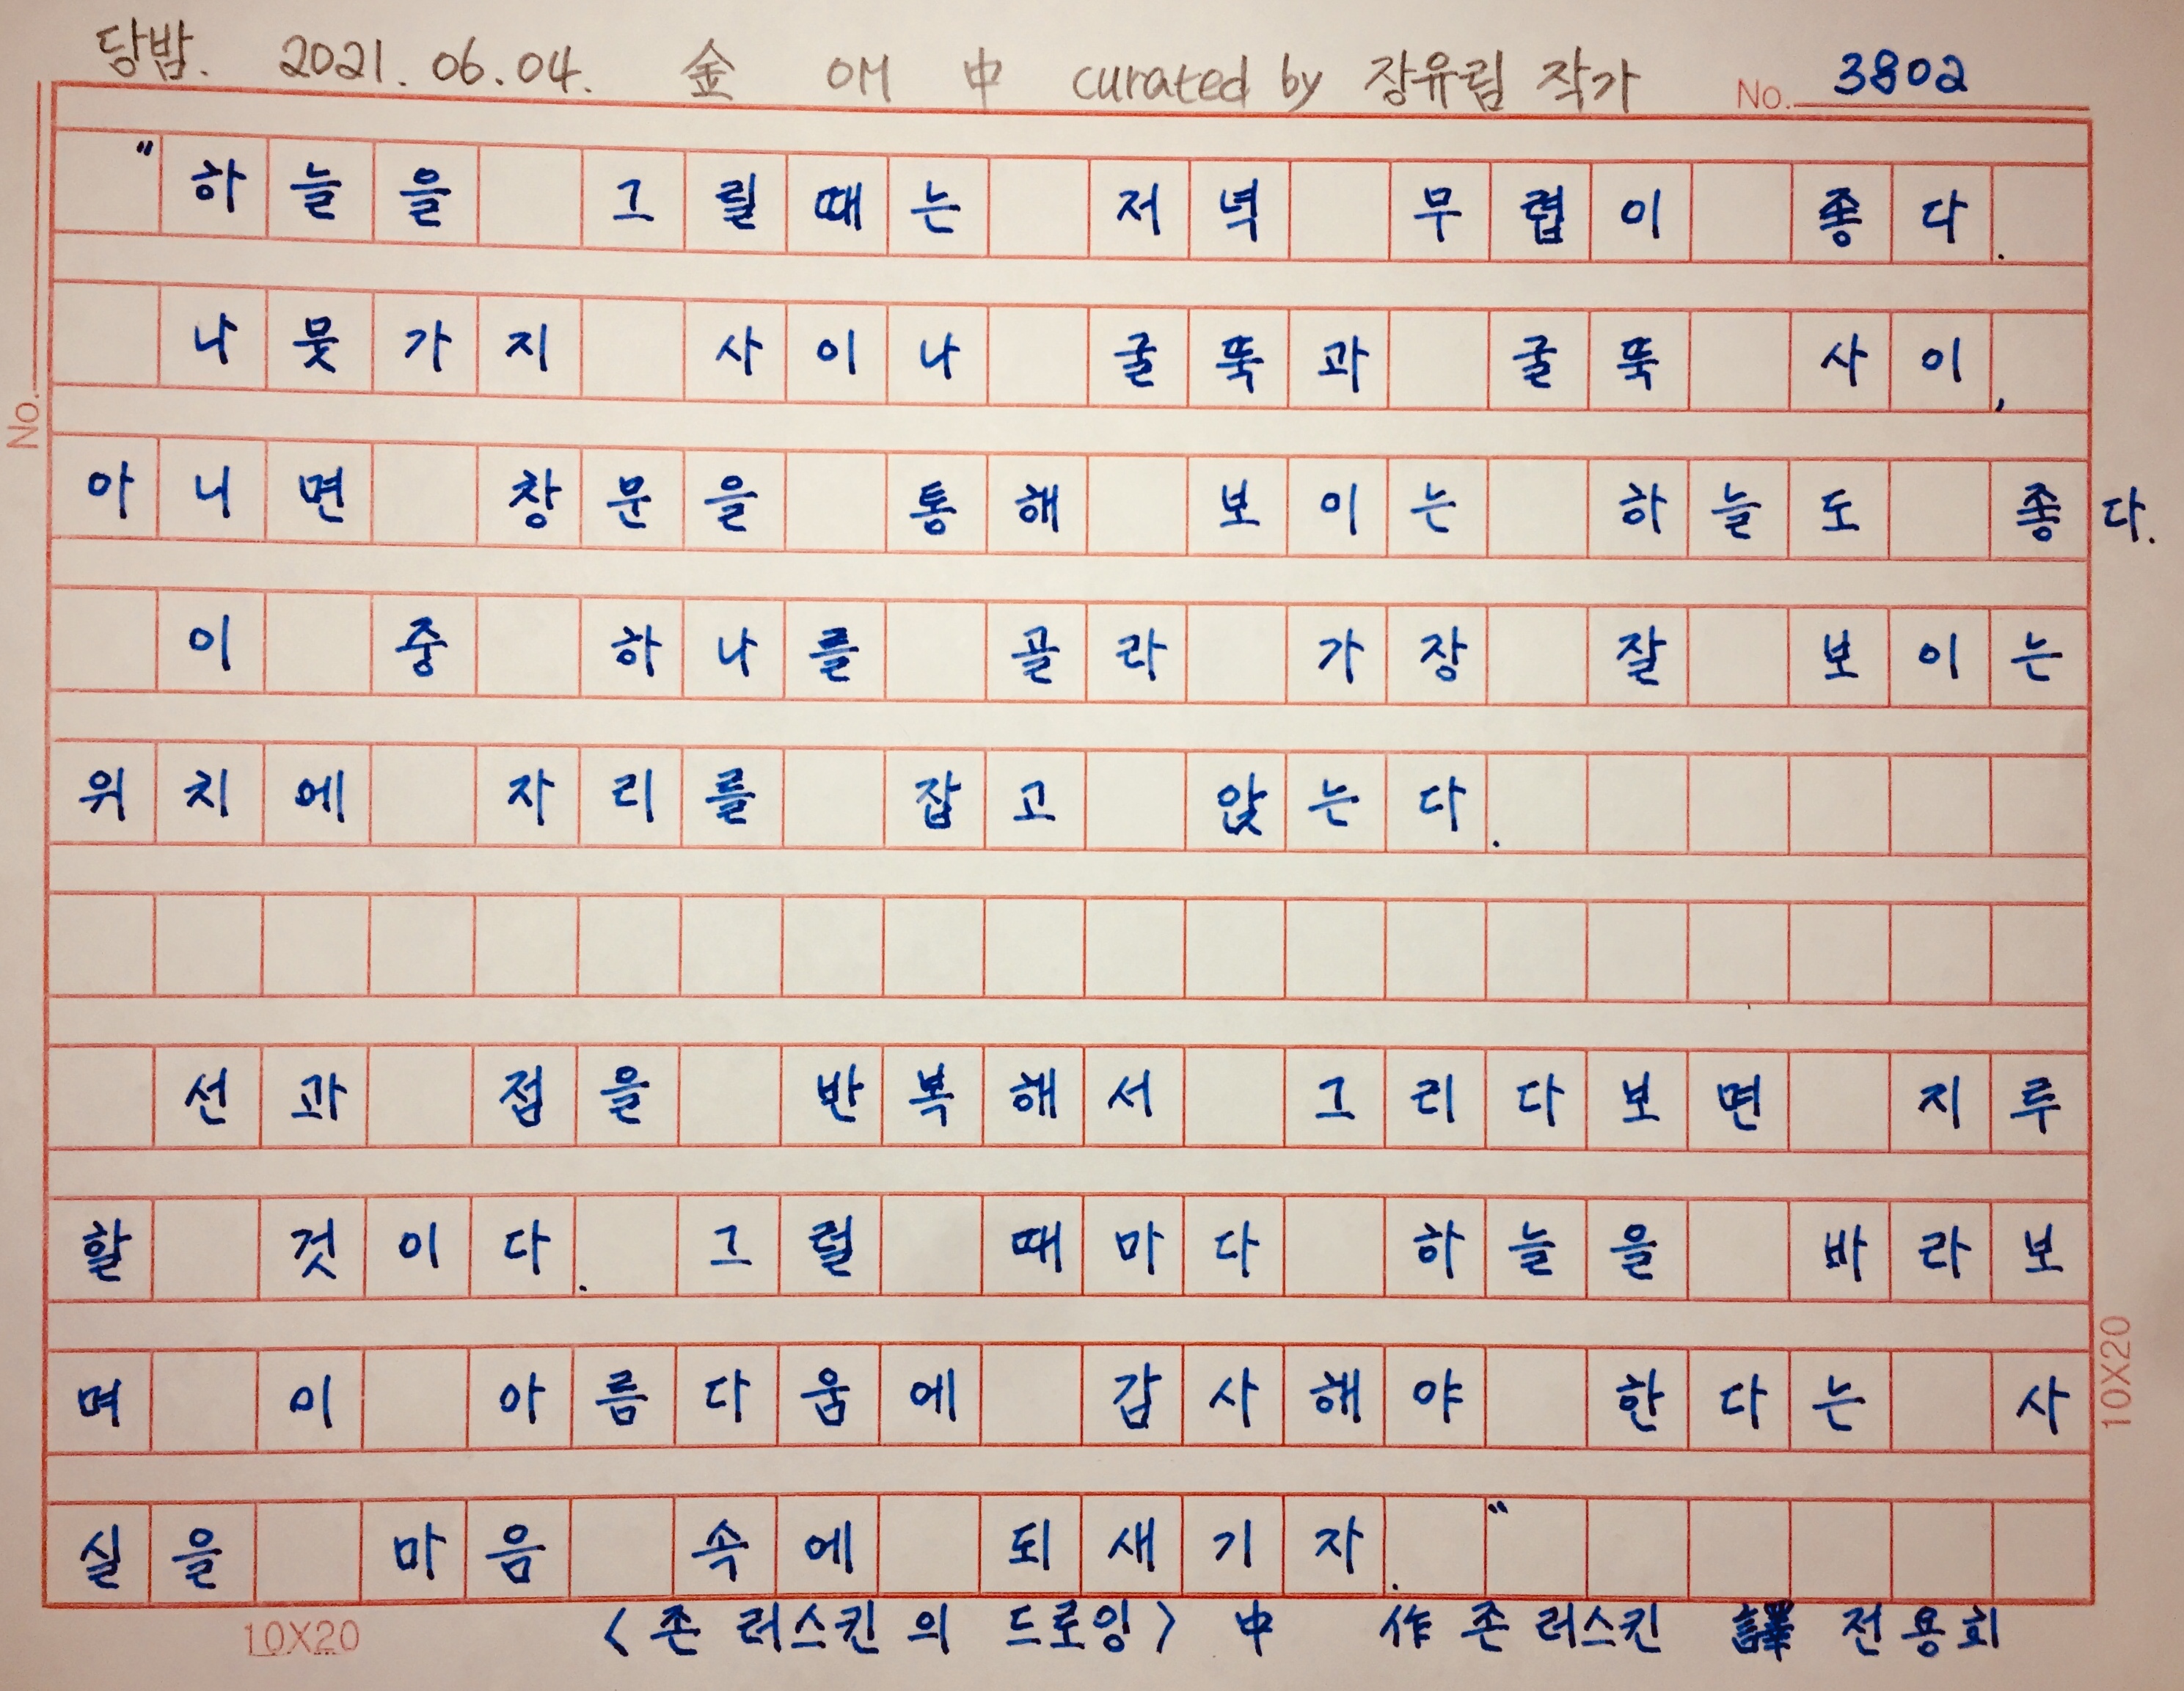 당밤. 2021. 06. 04. 金 OH 中 curated by 장유림 작가 No. 3802
"하늘을 그릴때는 저녁 무렵이 좋다.
나뭇가지 사이나 굴뚝과 굴뚝 사이,
아니면 창문을 통해 보이는 하늘도 좋다.
이 중 하나를 골라 가장 잘 보이는
위치에 자리를 잡고 앉는다.
선과 점을 반복해서 그리다보면 지루
할 것이다. 그럴 때마다 하늘을 바라보
며 이 아름다움에 감사해야 한다는 사
실을 마음 속에 되새기자."
<존 러스킨의 드로잉> 中 作 존 러스킨 譯 전용희
No.
10X20
10X20